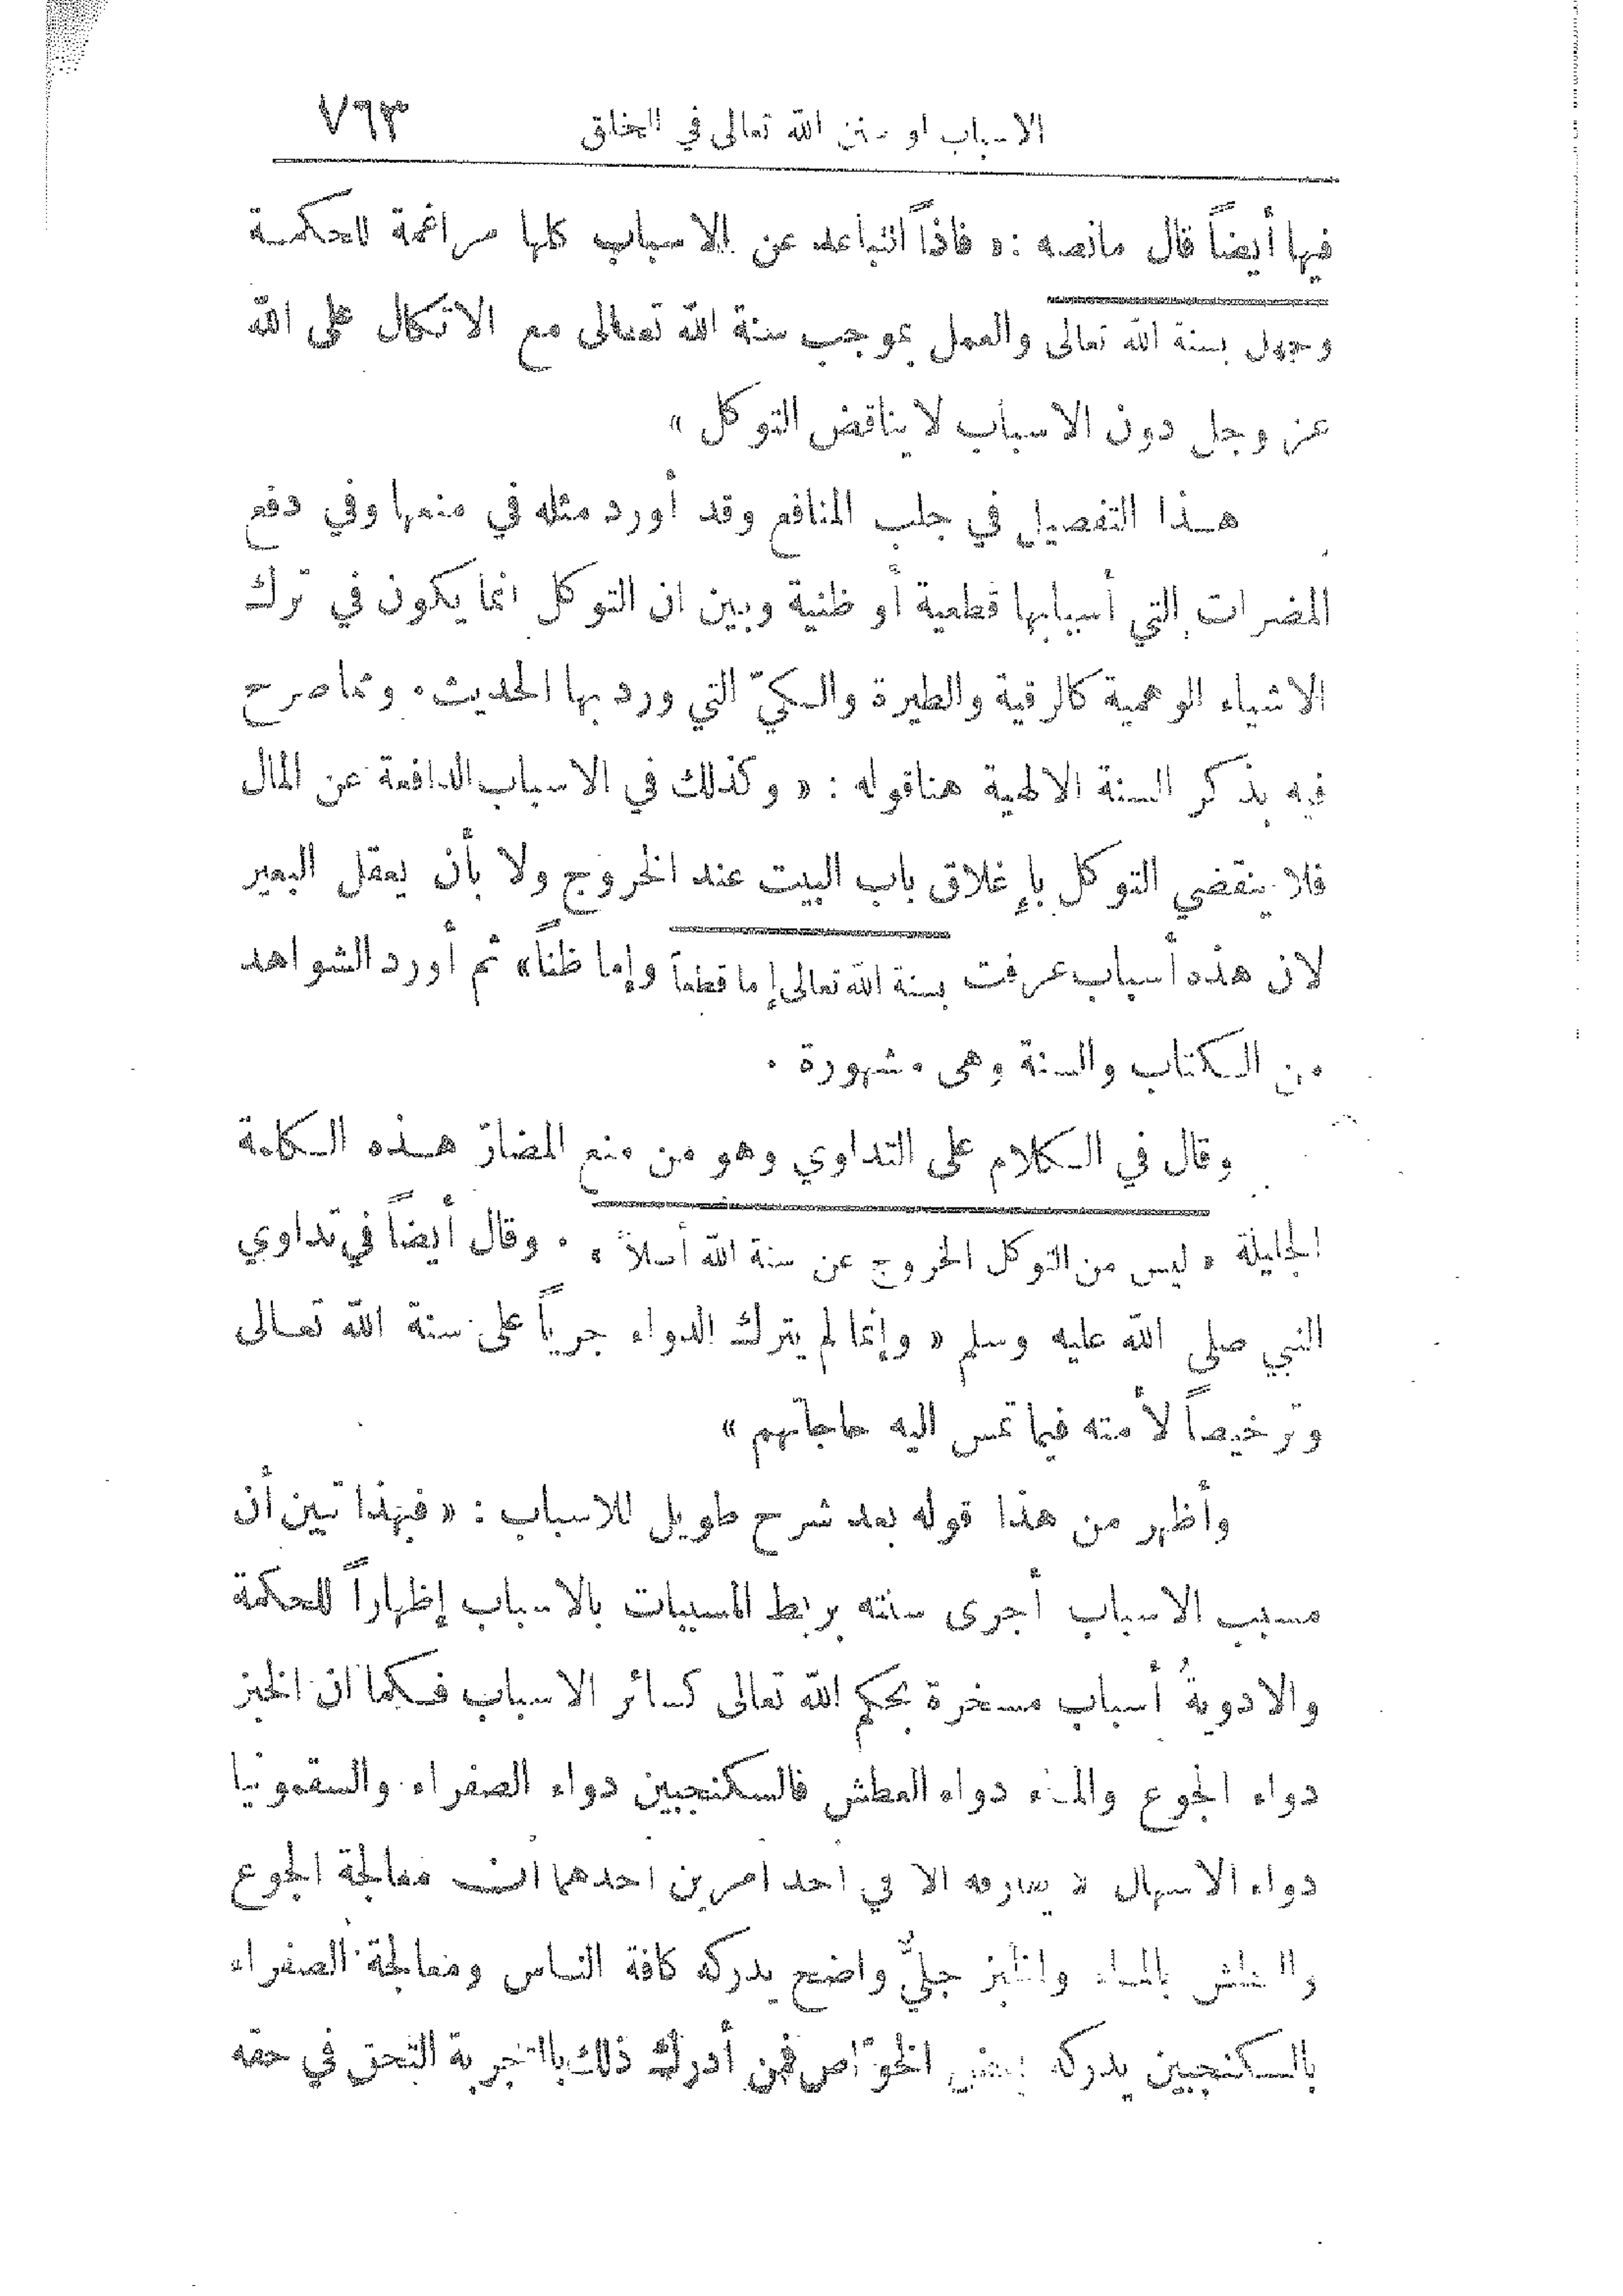 الاسباب او سنن الله تعالى في الخلق ٧٦٣
فيها أيضاً قال مانصه : « فاذاً التباعد عن الاسباب كلها مراغمة للحكمة
وجهل بسنة الله تعالى والعمل بموجب سنة الله تعالى مع الاتكال على الله
عز وجل دون الاسباب لا يناقض التوكل »
هذا التفصيل في جلب المنافع وقد أورد مثله في منعها وفي دفع
المضرات التي أسبابها قطعية أو ظنية وبين ان التوكل انما يكون في ترك
الاشياء الوهمية كالرقية والطيرة والكيّ التي ورد بها الحديث . ومما صرح
فيه بذكر السنة الالهية هنا قوله : « وكذلك في الاسباب الدافعة عن المال
فلا ينقضي التوكل بإغلاق باب البيت عند الخروج ولا بأن يعقل البعير
لان هذه أسباب عرفت بسنة الله تعالى إما قطعاً وإما ظناً » ثم أورد الشواهد
من الكتاب والسنة وهى مشهورة .
وقال في الكلام على التداوي وهو من منع المضارّ هذه الكلمة
الجليلة « ليس من التوكل الخروج عن سنة الله أصلاً » . وقال أيضاً في تداوي
النبي صلى الله عليه وسلم « وإنما لم يترك الدواء جرياً على سنة الله تعالى
وترخيصاً لأمته فيما تمس اليه حاجاتهم »
وأظهر من هذا قوله بعد شرح طويل للاسباب : « فبهذا تبين أن
مسبب الاسباب أجرى سنته بربط المسببات بالاسباب إظهاراً للحكمة
والادويةُ أسباب مسخرة بحكم الله تعالى كسائر الاسباب فكما ان الخبز
دواء الجوع والماء دواء العطش فالسكنجبين دواء الصفراء والسقمونيا
دواء الاسهال لا يفارقه الا في احد امرين احدهما ان معالجة الجوع
والعطش بالماء والخبز جليٌّ واضح يدركه كافة الناس ومعالجة الصفراء
بالسكنجبين يدركه بعض الخوّاص فمن أدرك ذلك بالتجربة التحق في حقه